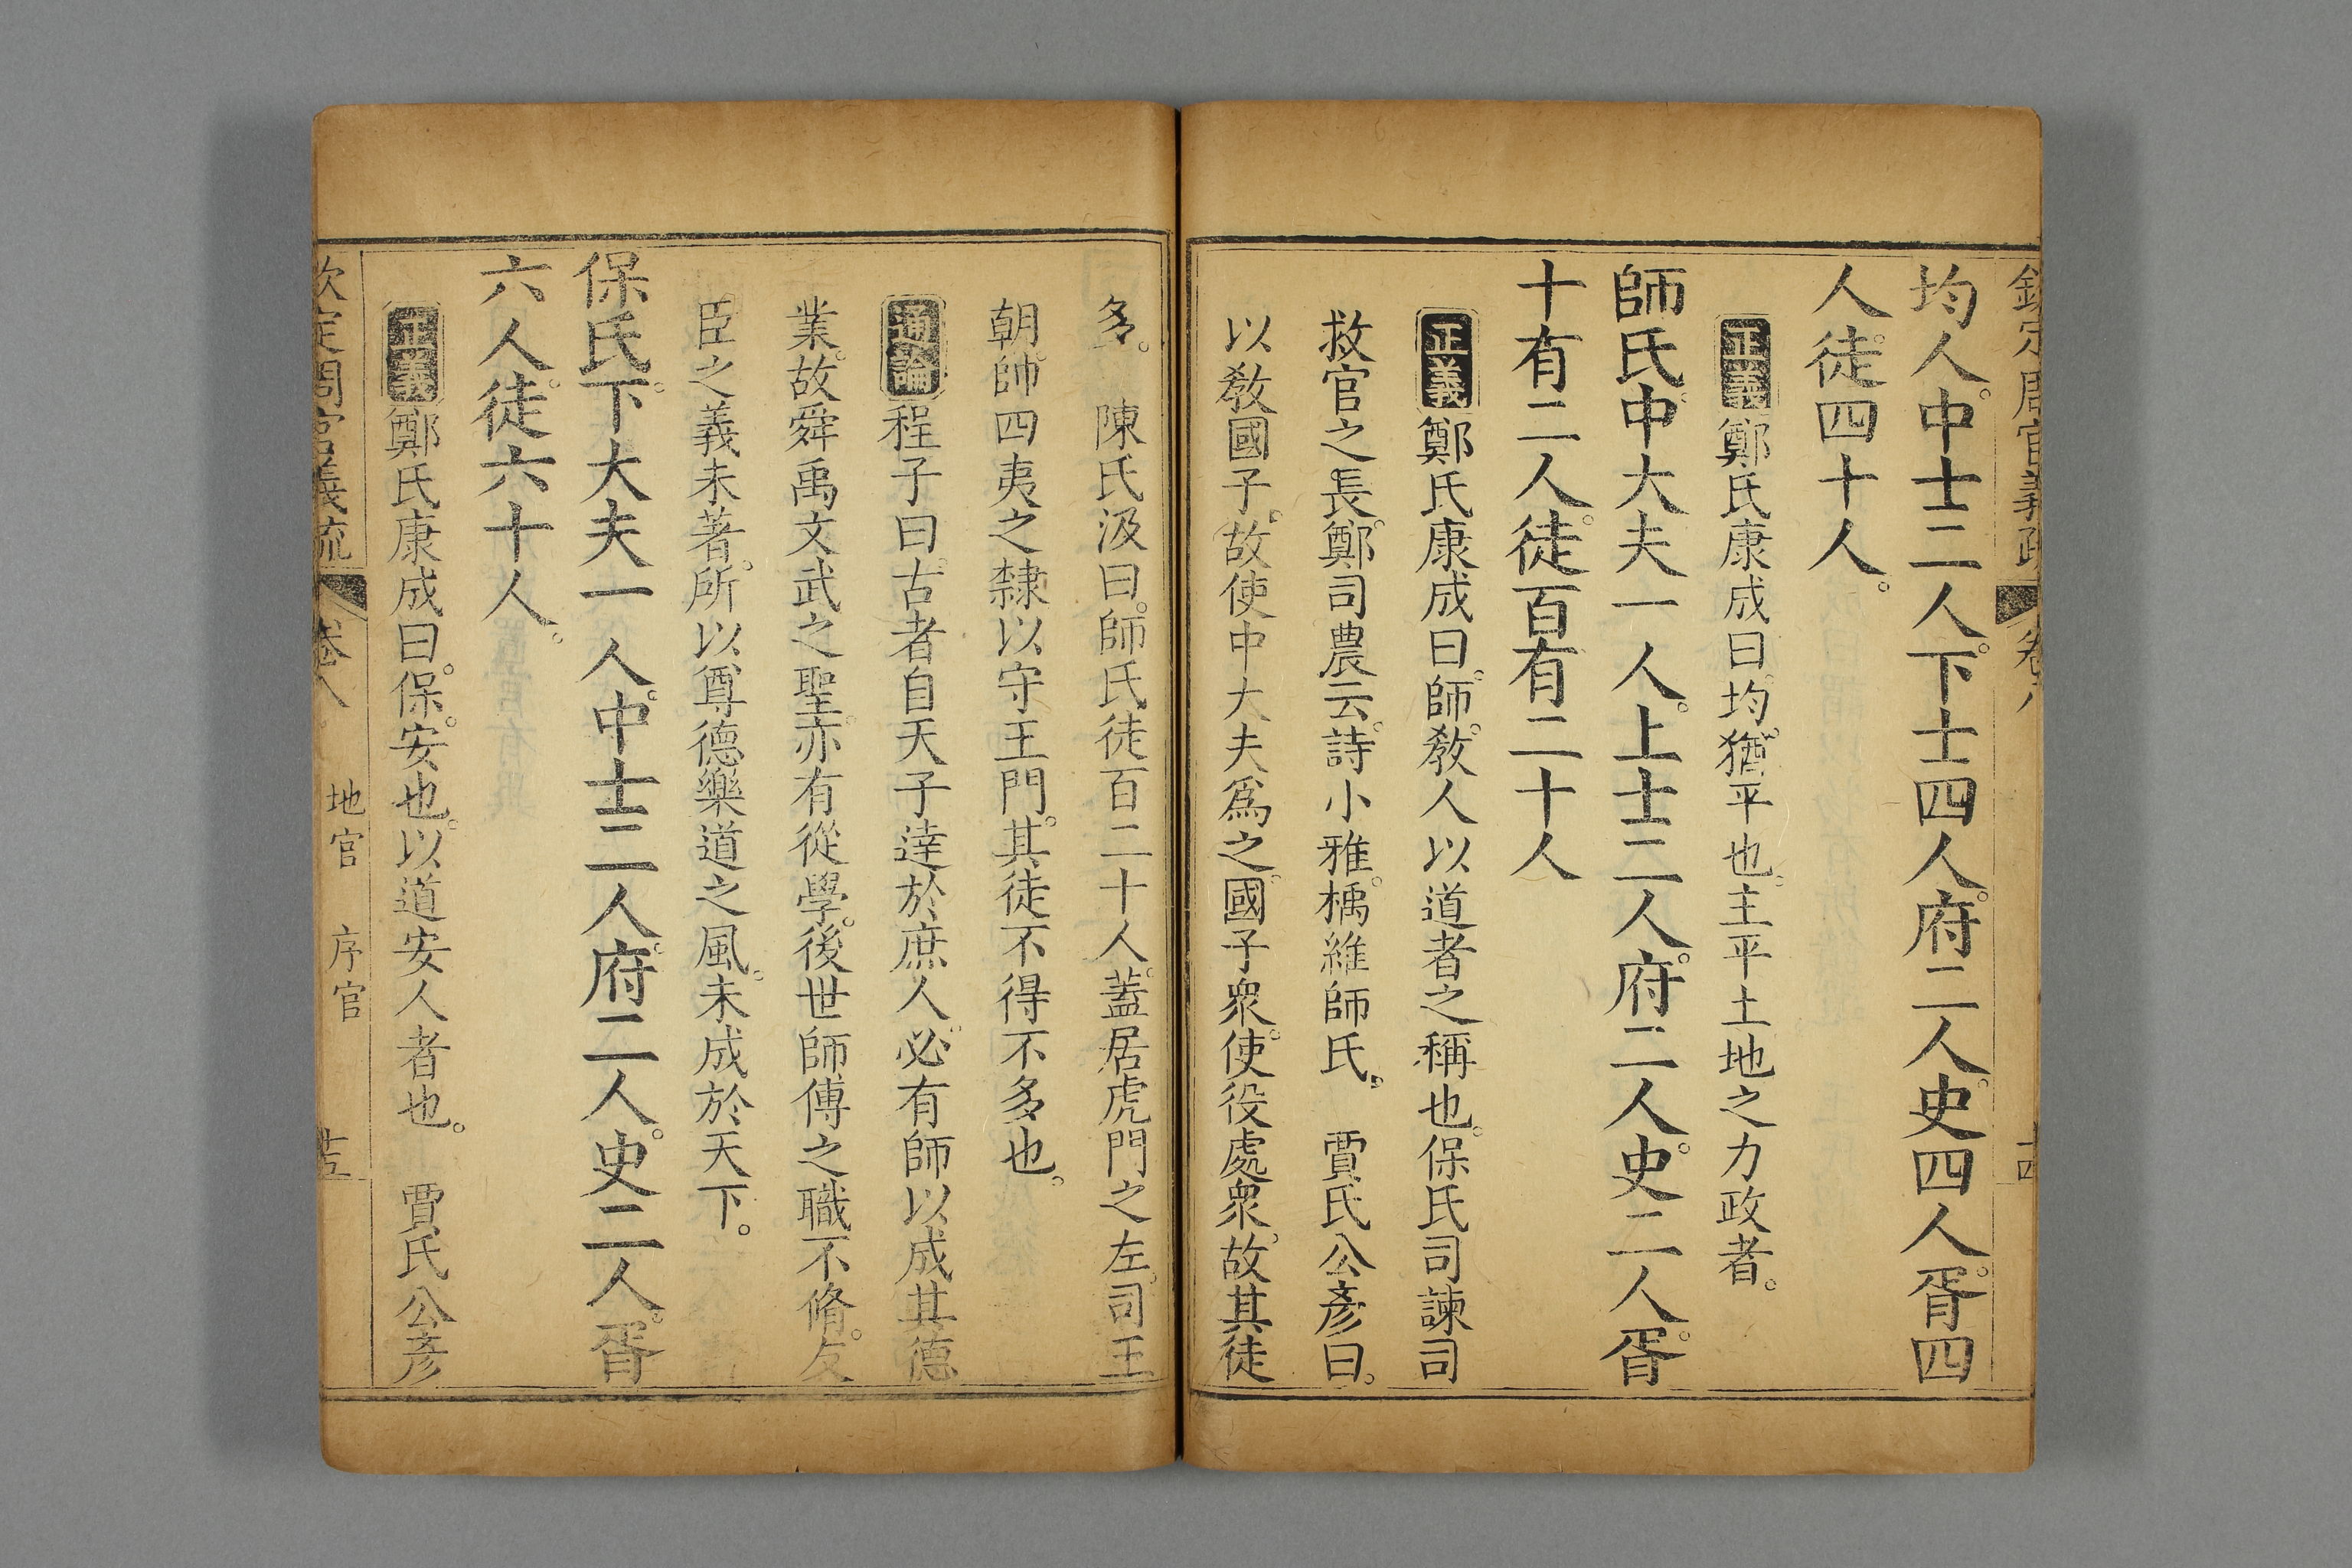 欽定周官義疏 卷八
均人。中士二人。下士四人。府二人。史四人。胥四
人。徒四十人。
正義鄭氏康成曰。均。猶平也。主平土地之力政者。
師氏。中大夫一人。上士二人。府二人。史二人。胥
十有二人。徒百有二十人
正義鄭氏康成曰。師。敎人以道者之稱也。保氏司諫司
救官之長。鄭司農云。詩小雅。楀維師氏。 賈氏公彥曰。
以敎國子。故使中大夫爲之。國子衆。使役處衆。故其徒
多。 陳氏汲曰。師氏徒百二十人。蓋居虎門之左。司王
朝。帥四夷之隸以守王門。其徒不得不多也。
通論程子曰。古者自天子達於庶人。必有師以成其德
業。故舜禹文武之聖。亦有從學。後世師傅之職不脩。友
臣之義未著。所以尊德樂道之風。未成於天下。
保氏。下大夫一人。中士二人。府二人。史二人。胥
六人。徒六十人。
正義鄭氏康成曰。保。安也。以道安人者也。 賈氏公彥
欽定周官義疏 卷八 地官 序官